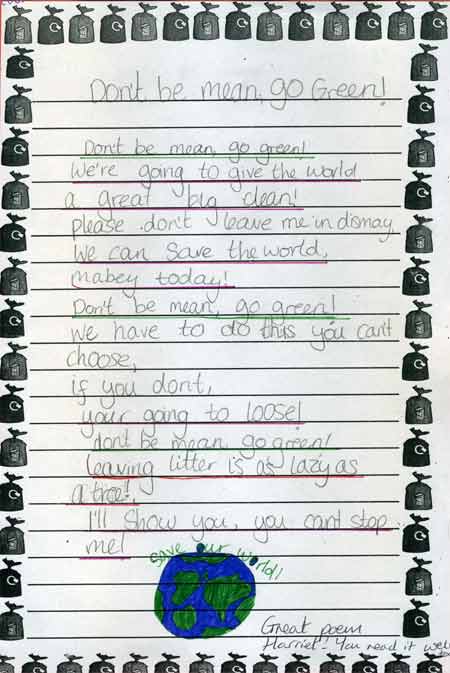 Don't be mean, go Green!
Don't be mean, go green!
We're going to give the world
a great big clean!
please don't leave me in dismay,
We can save the world,
mabey today!
Don't be mean, go green!
we have to do this you can't
choose,
if you dont,
your going to loose!
dont be mean, go green!
leaving litter is as lazy as
a tree!,
I'll show you, you cant stop
me!
Save our world!
Great poem
Harriet - You read it well